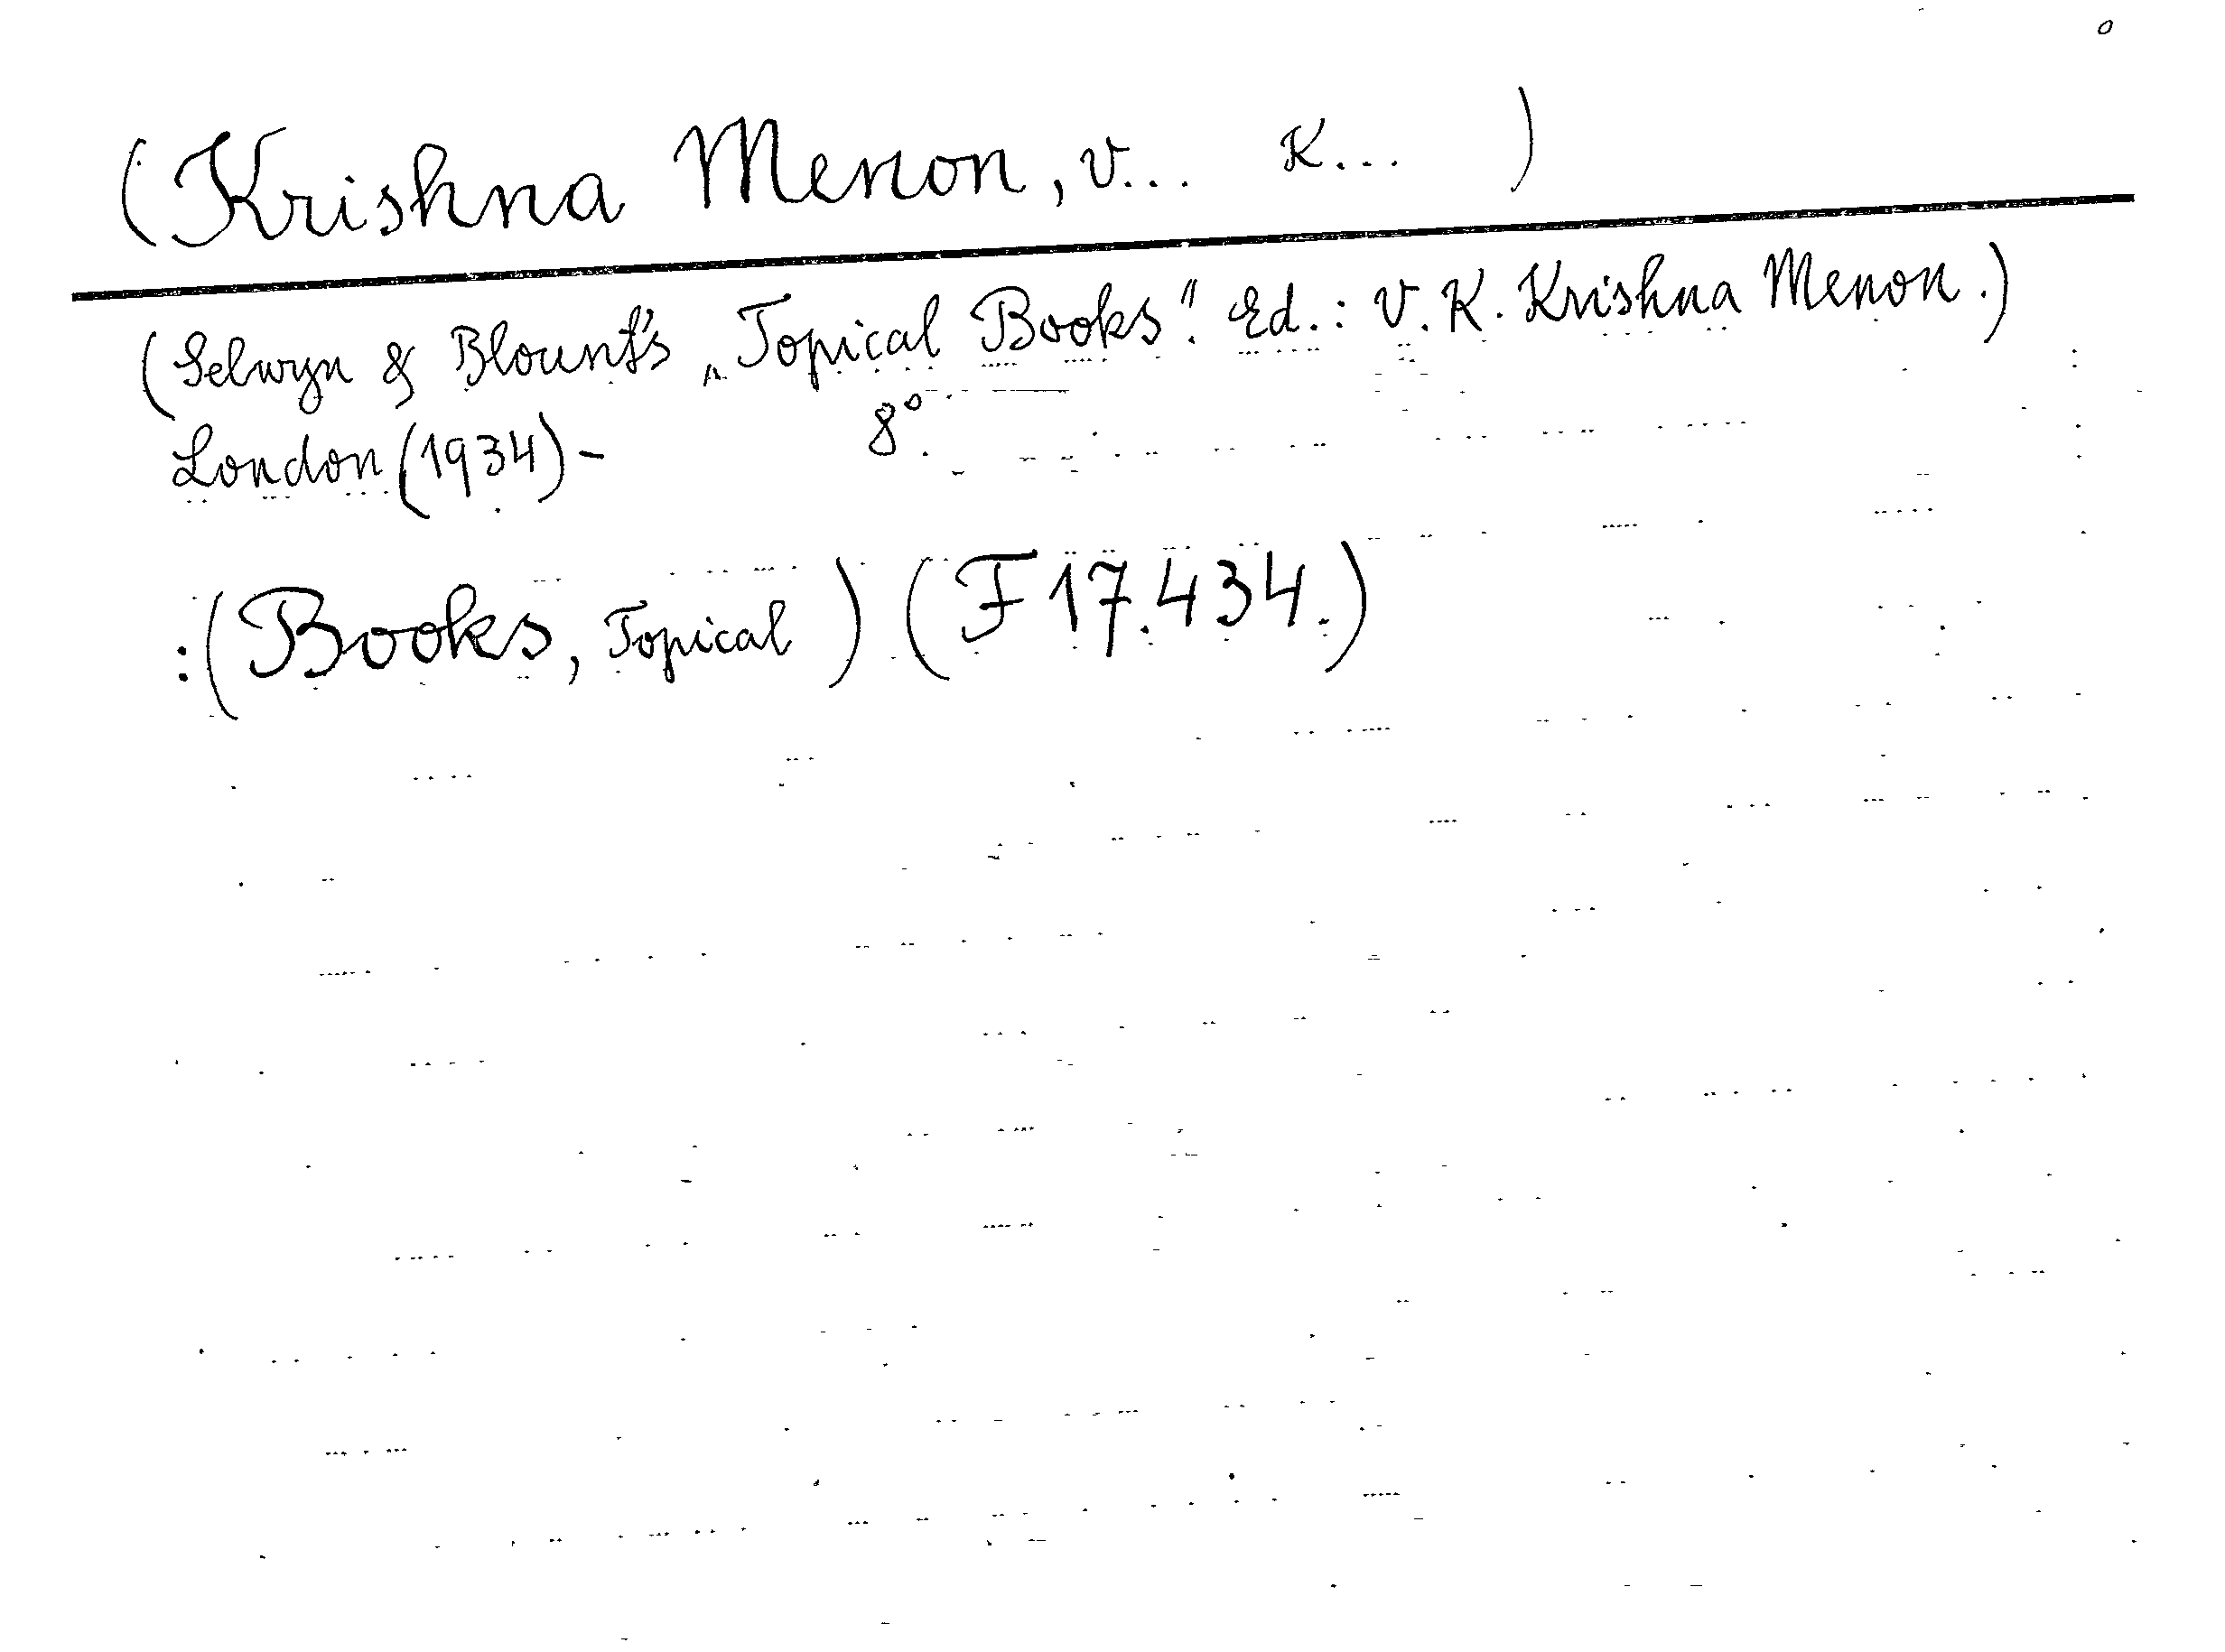 o
(Krishna Menon, V... K... )
(Selwyn & Blount's „Topical Books“. Ed.: V. K. Krishna Menon.)
London (1934)- 8°.
:(Books, Topical) (F 17.434.)